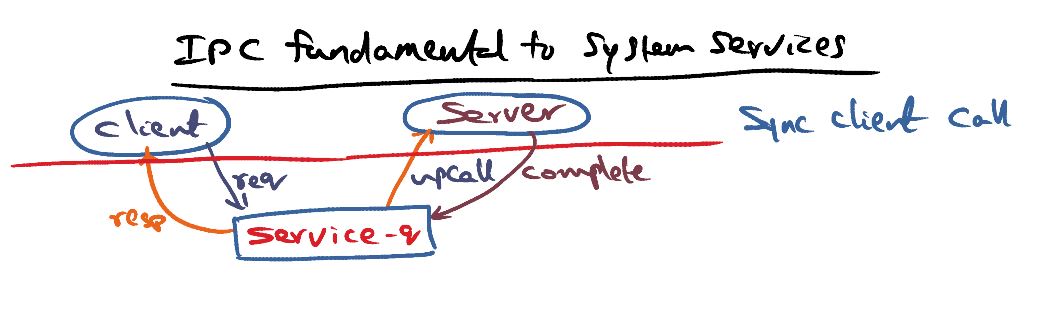 IPC fundamental to system services
client
server
Sync client call
req
upcall
complete
resp
service-q